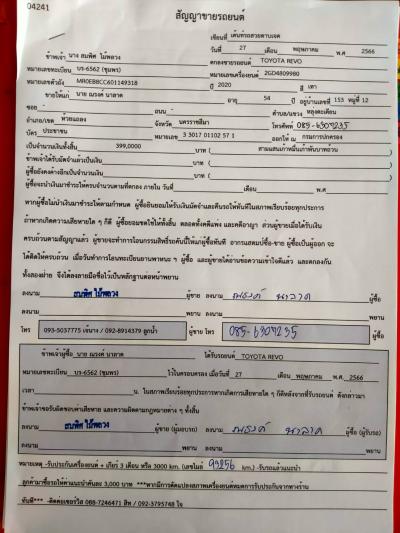 04241
สัญญาขายรถยนต์
เขียนที่ เต้นท์รถสวยตาบเจต
วันที่ 27 เดือน พฤษภาคม พ.ศ 2566
ข้าพเจ้า นาง สมพิศ ไม้พลวง ตกลงขายรถยนต์ TOYOTA REVO
หมายเลขทะเบียน บร-6562 (ชุมพร) หมายเลขเครื่องยนต์ 2GD4809980
หมายเลขตัวถัง MR0EB8CC601149318 ปี 2020 สี เทา
ขายให้แก่ นาย ณรงค์ นาลาด อายุ 54 ปี อยู่บ้านเลขที่ 153 หมู่ที่ 12
ซอย - ถนน - ตำบล/แขวง หลุงตะเคียน
อำเภอ/เขต ห้วยแถลง จังหวัด นครราชสีมา โทรศัพท์ 085-6307235
บัตร ประชาชน หมายเลข 3 3017 01102 57 1 ออกให้ ณ กรมการปกครอง
เป็นจำนวนเงินทั้งสิ้น 399,0000 บาท ( สามแสนเก้าหมื่นเก้าพันบาทถ้วน
ข้าพเจ้าได้รับมัดจำแล้วเป็นเงิน บาท (
ผู้ซื้อยังคงค้างอีกเป็นจำนวนเงิน บาท (
ผู้ซื้อจะนำเงินมาชำระให้ครบจำนวนตามที่ตกลง ภายใน วันที่ เดือน พ.ศ
หากผู้ซื้อไม่นำเงินมาชำระให้ตามกำหนด ผู้ซื้อยินยอมให้ริบเงินมัดจำและคืนรถให้ทันทีในสภาพเรียบร้อยทุกประการ
ถ้าหากเกิดความเสียหายใด ๆ ก็ดี ผู้ซื้อยอมชดใช้ให้ทั้งสิ้น ตลอดทั้งคดีแพ่ง และคดีอาญา ส่วนผู้ขายเมื่อได้รับเงิน
ครบถ้วนตามสัญญาแล้ว ผู้ขายจะทำการโอนกรรมสิทธิ์รถคันนี้ให้แก่ผู้ซื้อทันที อากรแสตมป์ซื้อ-ขาย ผู้ซื้อเป็นผู้ออก จะ
ได้คิดให้ครบถ้วน เมื่อวันทำการโอนทะเบียนยานพาหนะ ๆ ผู้ซื้อ และผู้ขายได้อ่านข้อความเข้าใจดีแล้ว และตกลงกัน
ทั้งสองฝ่าย จึงได้ลงลายมือชื่อไว้เป็นหลักฐานต่อหน้าพยาน
ลงนาม สมพิศ ไม้พลวง ผู้ขาย ลงนาม ณรงค์ นาลาด ผู้ซื้อ
ลงนาม พยาน ลงนาม พยาน
โทร 093-5037775 เจ๊นาง / 092-8914379 ลูกน้ำ ผู้ขาย โทร 085-6307235 ผู้ซื้อ
ข้าพเจ้าผู้ซื้อ นาย ณรงค์ นาลาด ได้รับรถยนต์ TOYOTA REVO
หมายเลขทะเบียน บร-6562 (ชุมพร) ไว้ในครอบครอง เมื่อวันที่ 27 เดือน พฤษภาคม พ.ศ 2566
เวลา น. ในสภาพเรียบร้อยทุกประการหากเกิดการเสียหายใด ๆ ก็ดีหลังจากที่รับรถยนต์ ดังกล่าวมา
ข้าพเจ้าขอรับผิดชอบค่าเสียหาย และความผิดตามกฎหมายต่าง ๆ ทั้งสิ้น
ลงนาม สมพิศ ไม้พลวง ผู้ขาย (ผู้มอบรถ) ลงนาม ณรงค์ นาลาด ผู้ซื้อ (ผู้รับรถ)
ลงนาม พยาน ลงนาม พยาน
หมายเหตุ -รับประกันเครื่องยนต์ + เกียร์ 3 เดือน หรือ 3000 km. (เลขไมล์ 99256 km.) -รับรถแล้วแนะนำ
ลูกค้ามาซื้อรถให้ค่าแนะนำคันละ 3,000 บาท ***หากมีการดัดแปลงสภาพเครื่องยนต์หมดการรับประกันจากทางร้าน
ทันที*** -ติดต่อเซอร์วิส 088-7246471 สิท / 092-3795748 ใจ